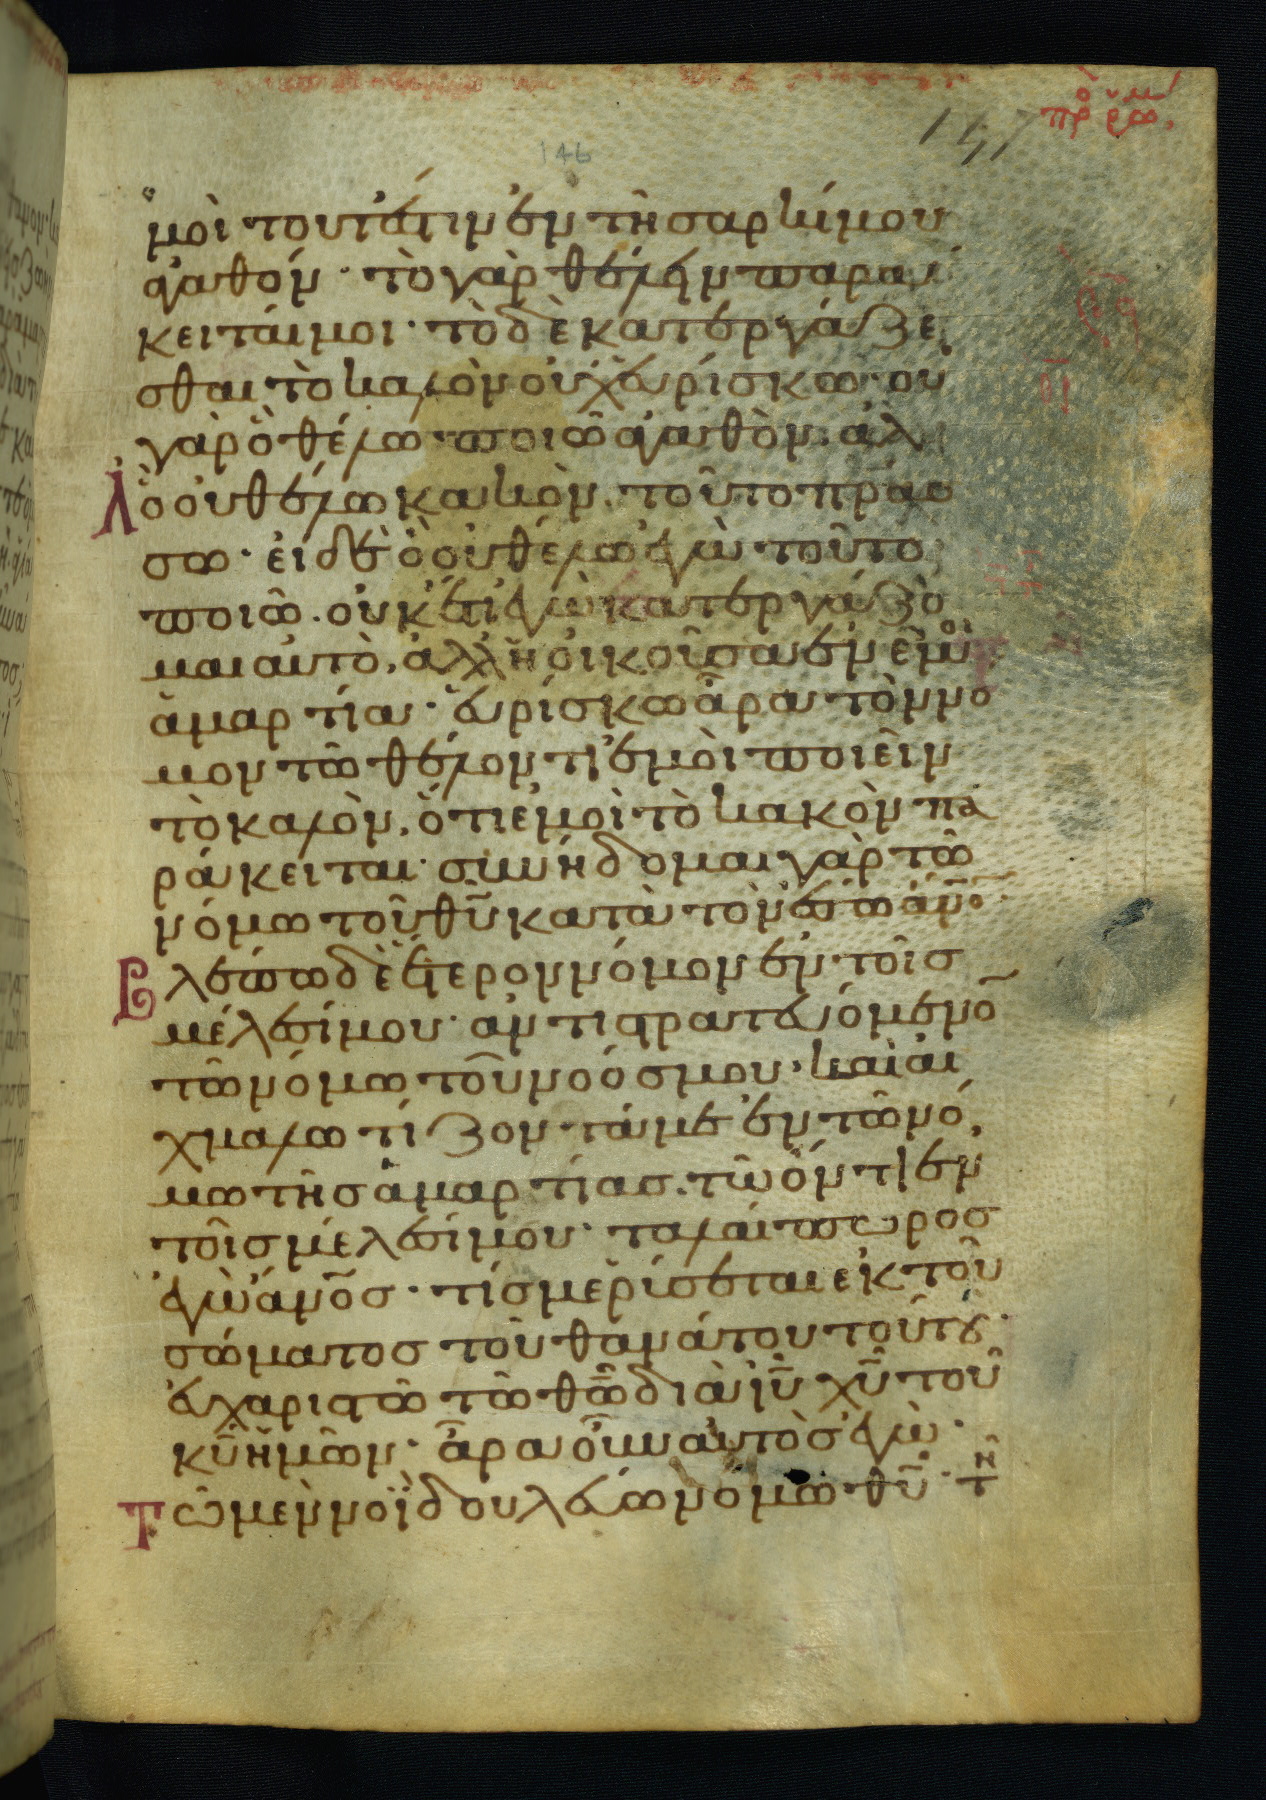 πρὸ ρωμ
147
146
μοὶ τουτέστιν ἐν τῇ σαρκί μου
ἀγαθόν · τὸ γὰρ θέλειν παρά
κειταί μοι · τὸ δὲ κατεργάζε
σθαι τὸ καλὸν οὐχ εὑρίσκω · οὐ
γὰρ ὃ θέλω ποιῶ ἀγαθὸν · ἀλ
λ ὃ οὐ θέλω κακὸν, τοῦτο πράσ
σω · εἰ δὲ ὃ οὐ θέλω ἐγὼ τοῦτο
ποιῶ · οὐκέτι ἐγὼ κατεργάζο
μαι αὐτὸ, ἀλλ ἡ οἰκοῦσα ἐν ἐμοὶ
ἁμαρτία · εὑρίσκω ἄρα τὸν νό
μον τῷ θέλοντι ἐμοὶ ποιεῖν
τὸ καλὸν, ὅτι ἐμοὶ τὸ κακὸν πα
ράκειται · συνήδομαι γὰρ τῶ
νόμω τοῦ θῦ κατὰ τὸν ἔσω ἄνο̅
βλέπω δὲ ἕτερον νόμον ἐν τοῖς
μέλεσί μου · ἀντιστρατευόμενο̅
τῶ νόμω τοῦ νοός μου · καὶ αἰ
χμαλωτίζοντά με ἐν τῶ νό
μω τῆς ἁμαρτίας · τῶ ὄντι ἐν
τοῖς μέλεσί μου · ταλαίπωρος
ἐγὼ ἄνο̅ς · τίς με ῥύσεται ἐκ τοῦ
σώματος τοῦ θανάτου τούτου ·
εὐχαριστῶ τῶ θῶ διὰ ιῦ χῦ τοῦ
κῦ ἡμῶν · ἄρα οὖν αὐτὸς ἐγὼ ·
τῶ μὲν νοῒ δουλεύω νόμω θῦ · τῆ